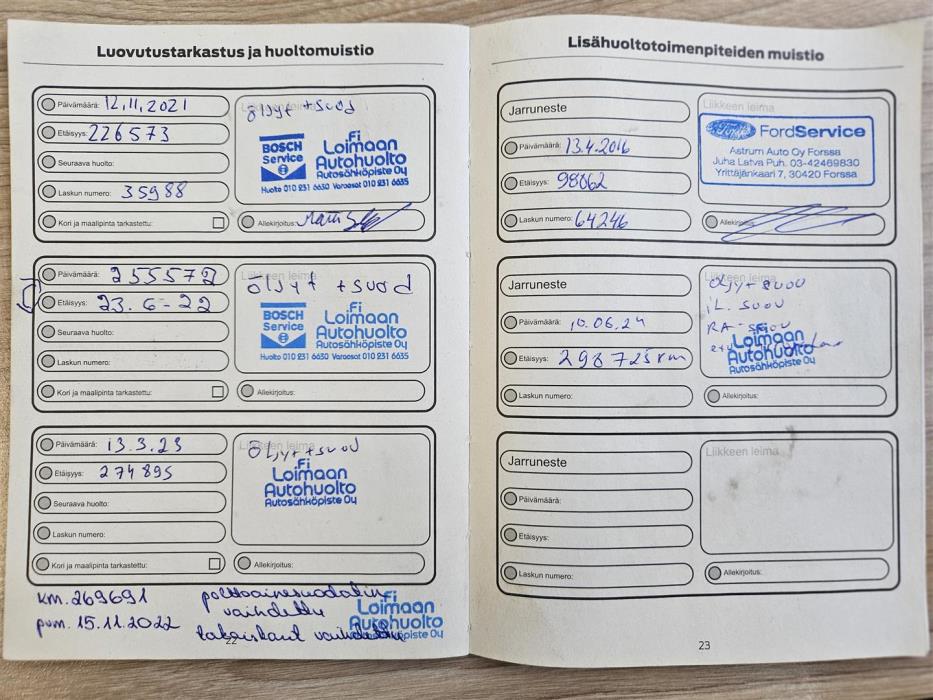 Luovutustarkastus ja huoltomuistio
Päivämäärä: 12.11.2021
Etäisyys: 226573
Seuraava huolto:
Laskun numero: 35988
Kori ja maalipinta tarkastettu:
Liikkeen leima
öljyt + suod
BOSCH Service
.Fi
Loimaan
Autohuolto
Autosähköpiste Oy
Huolto 010 231 6630 Varaosat 010 231 6635
Allekirjoitus:
Päivämäärä: 255572
Etäisyys: 23.6-22
Seuraava huolto:
Laskun numero:
Kori ja maalipinta tarkastettu:
Liikkeen leima
öljyt + suod
BOSCH Service
.Fi
Loimaan
Autohuolto
Autosähköpiste Oy
Huolto 010 231 6630 Varaosat 010 231 6635
Allekirjoitus:
Päivämäärä: 13.3.23
Etäisyys: 274895
Seuraava huolto:
Laskun numero:
Kori ja maalipinta tarkastettu:
Liikkeen leima
öljyt + suod
.Fi
Loimaan
Autohuolto
Autosähköpiste Oy
Allekirjoitus:
km. 269691
pvm. 15.11.2022
polttoainesuodatin
vaihdettu
takaiskarit vaihdettu
.Fi
Loimaan
Autohuolto
Autosähköpiste Oy
22
Lisähuoltotoimenpiteiden muistio
Jarruneste
Päivämäärä: 13.4.2016
Etäisyys: 98062
Laskun numero: 64246
Liikkeen leima
Ford FordService
Astrum Auto Oy Forssa
Juha Latva Puh. 03-42469830
Yrittäjänkaari 7, 30420 Forssa
Allekirjoitus:
Jarruneste
Päivämäärä: 10.06.24
Etäisyys: 298725km
Laskun numero:
Liikkeen leima
öljyt + suod
iL. suod
RA-suod
Loimaan
Autohuolto
Autosähköpiste Oy
Allekirjoitus:
Jarruneste
Päivämäärä:
Etäisyys:
Laskun numero:
Liikkeen leima
Allekirjoitus:
23